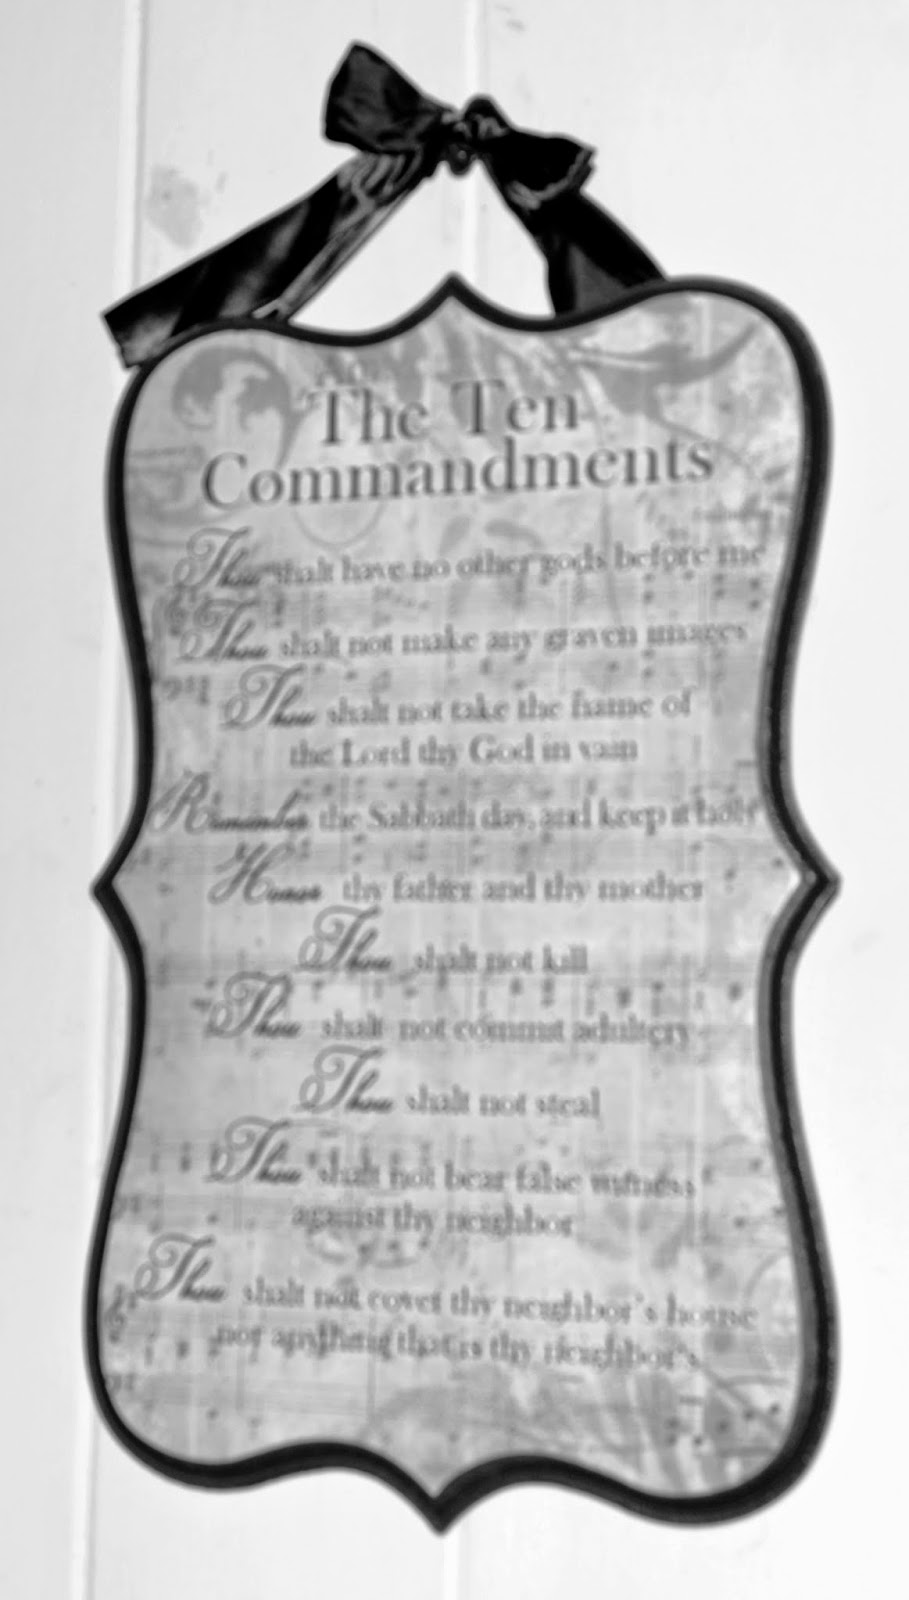 The Ten
Commandments
Thou shalt have no other gods before me
Thou shalt not make any graven images
Thou shalt not take the name of
the Lord thy God in vain
Remember the Sabbath day, and keep it holy
Honor thy father and thy mother
Thou shalt not kill
Thou shalt not commit adultery
Thou shalt not steal
Thou shalt not bear false witness
against thy neighbor
Thou shalt not covet thy neighbor's house
nor anything that is thy neighbor's